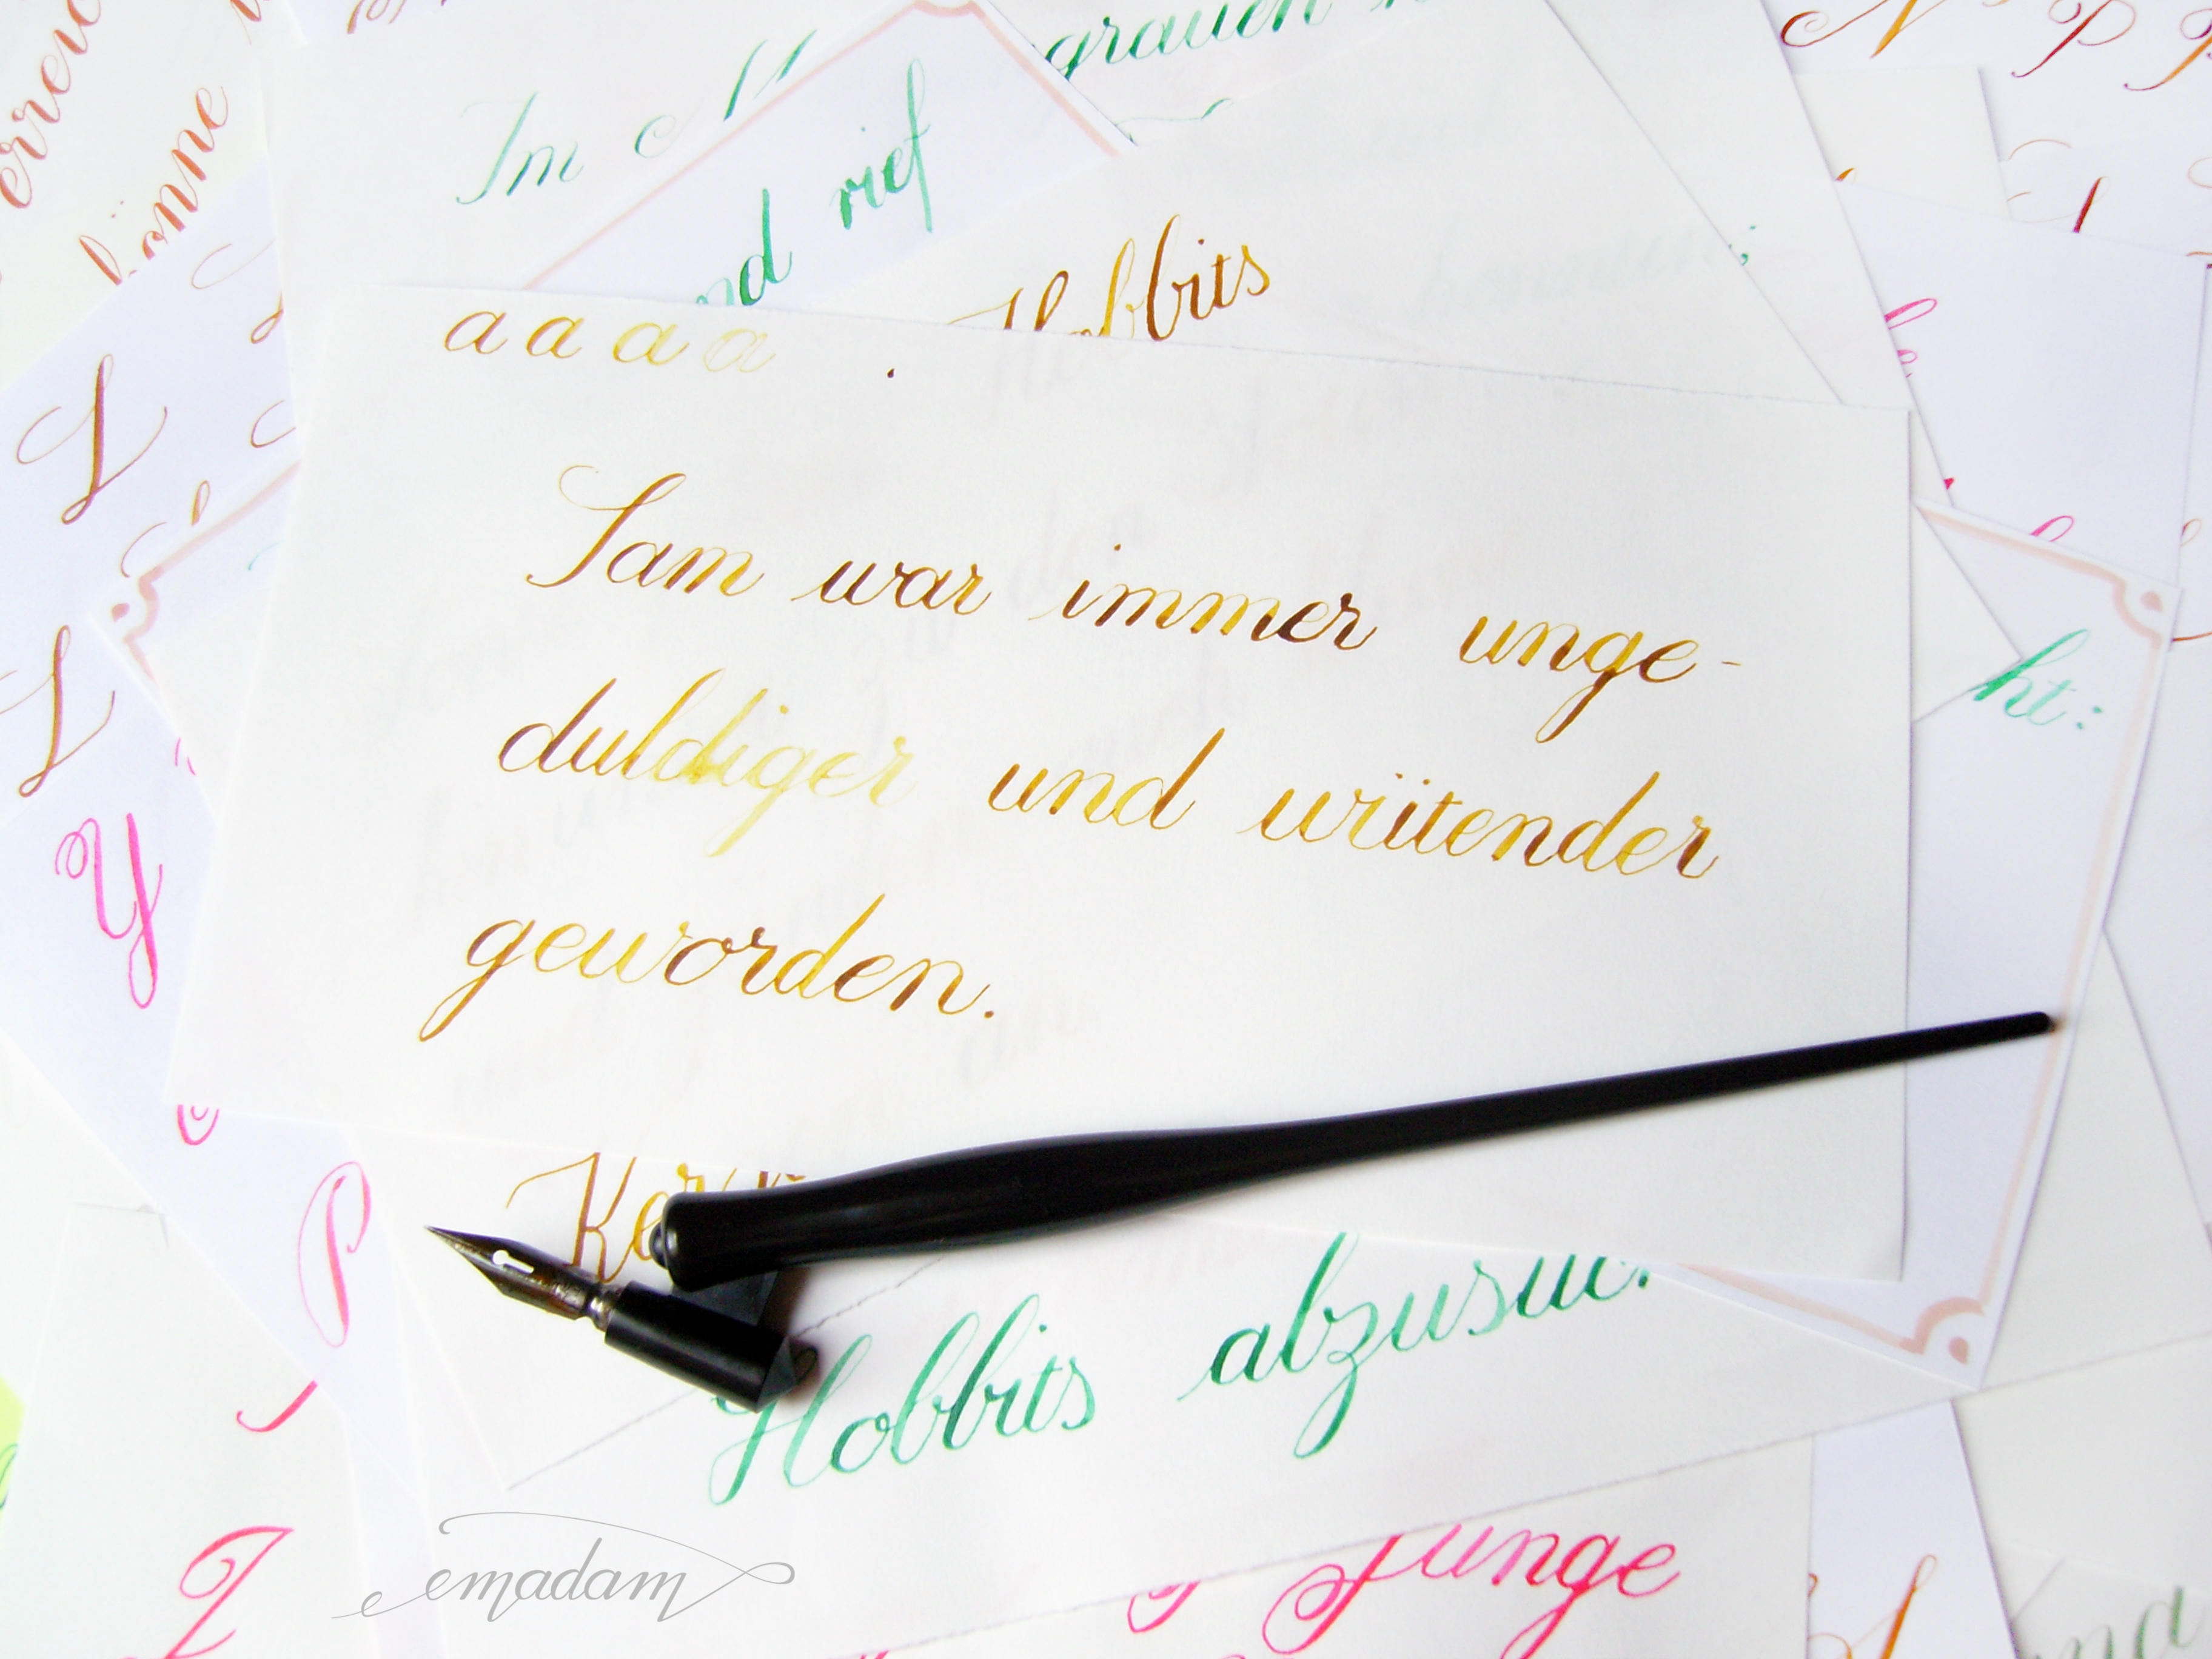 grauen
Im
rief
könne
Hobbits
a a a a .
L
Sam war immer unge-
duldiger und wütender
geworden.
ht:
L
Y
P
Hobbits abzusuc
Junge
I
emadam